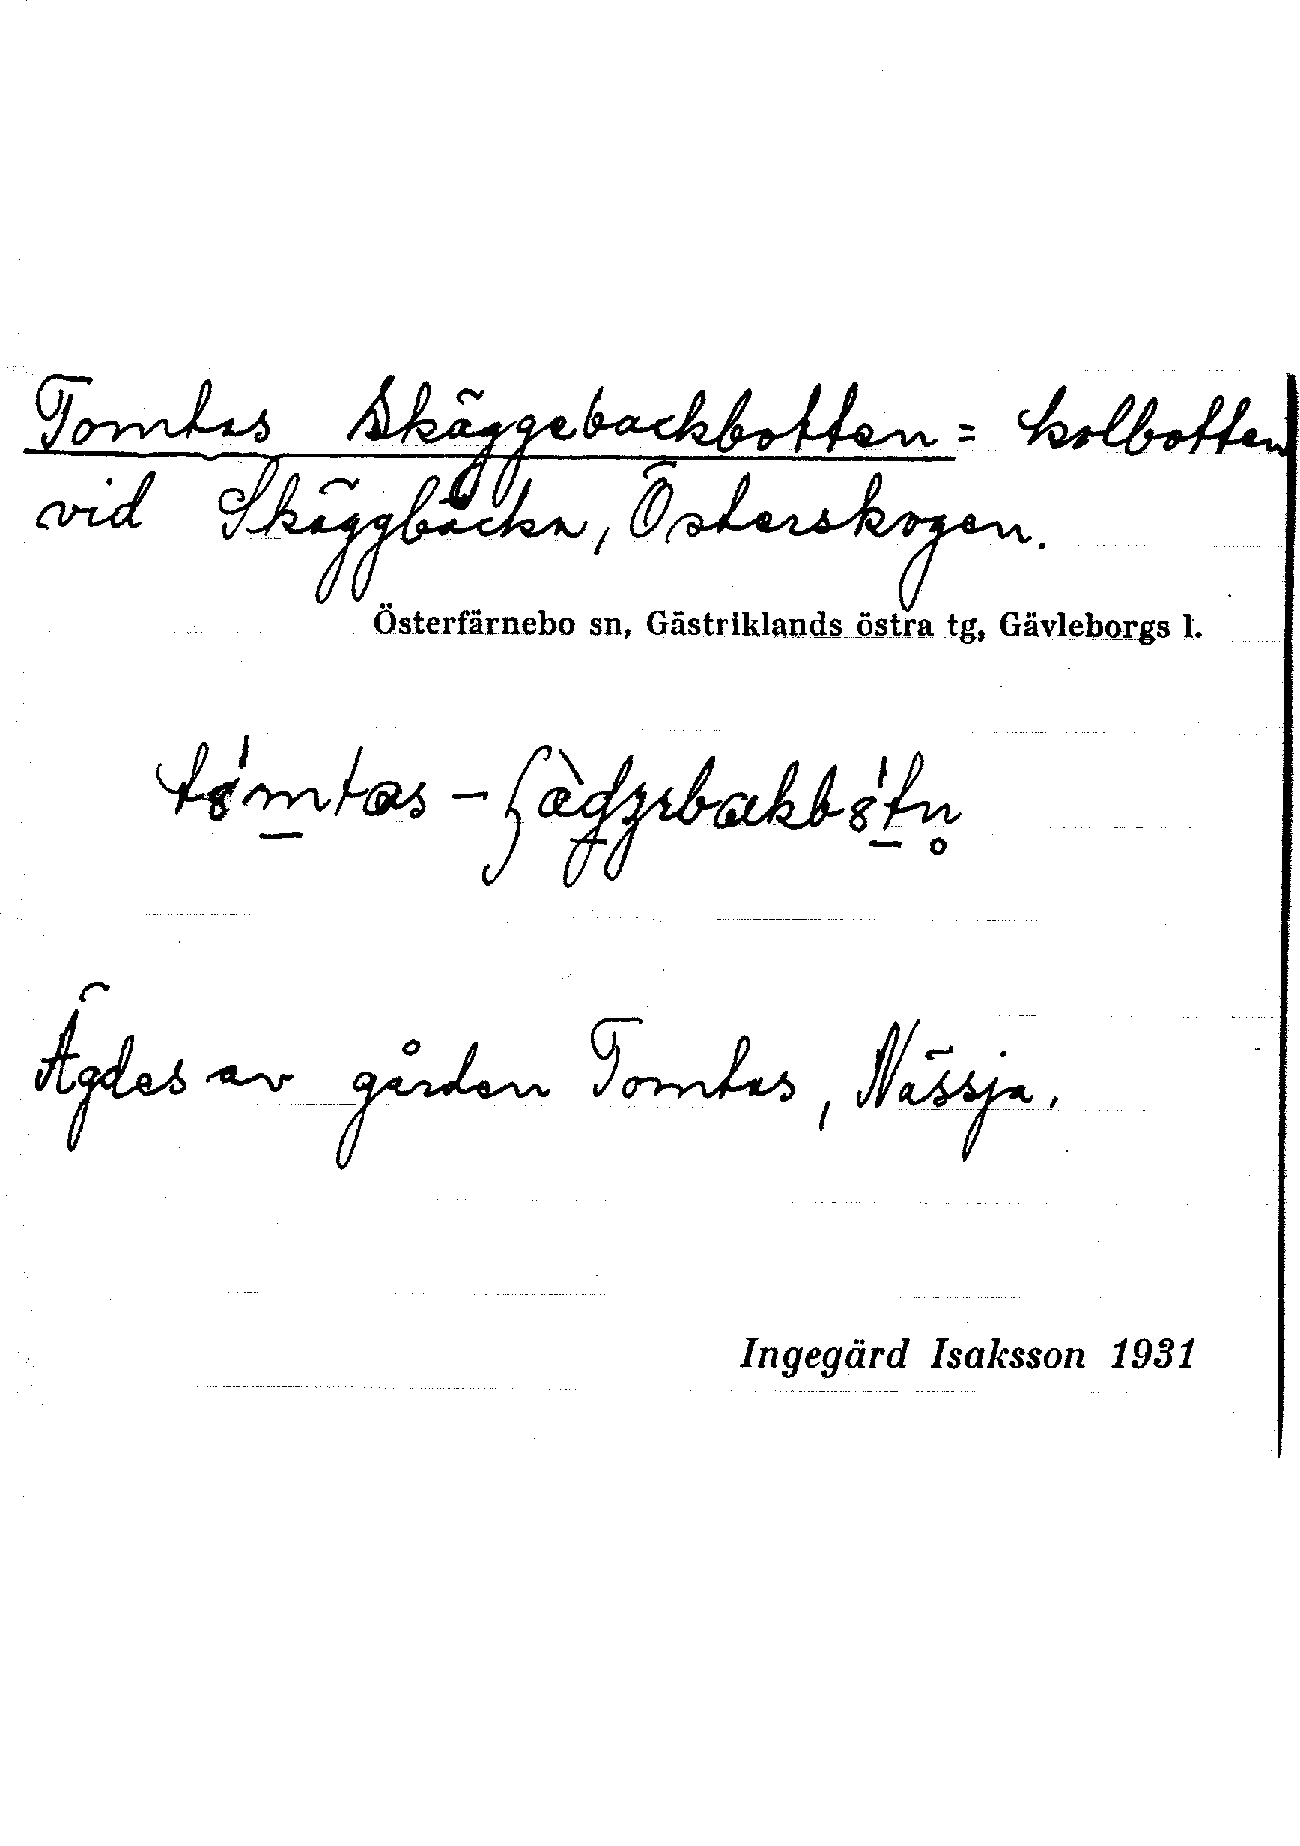 Tomtas Skäggebackbotten = kolbotten
vid Skäggbäcka, Österskogen.
Österfärnebo sn, Gästriklands östra tg, Gävleborgs l.
Ägdes av gården Tomtas, Nässja.
Ingegärd Isaksson 1931